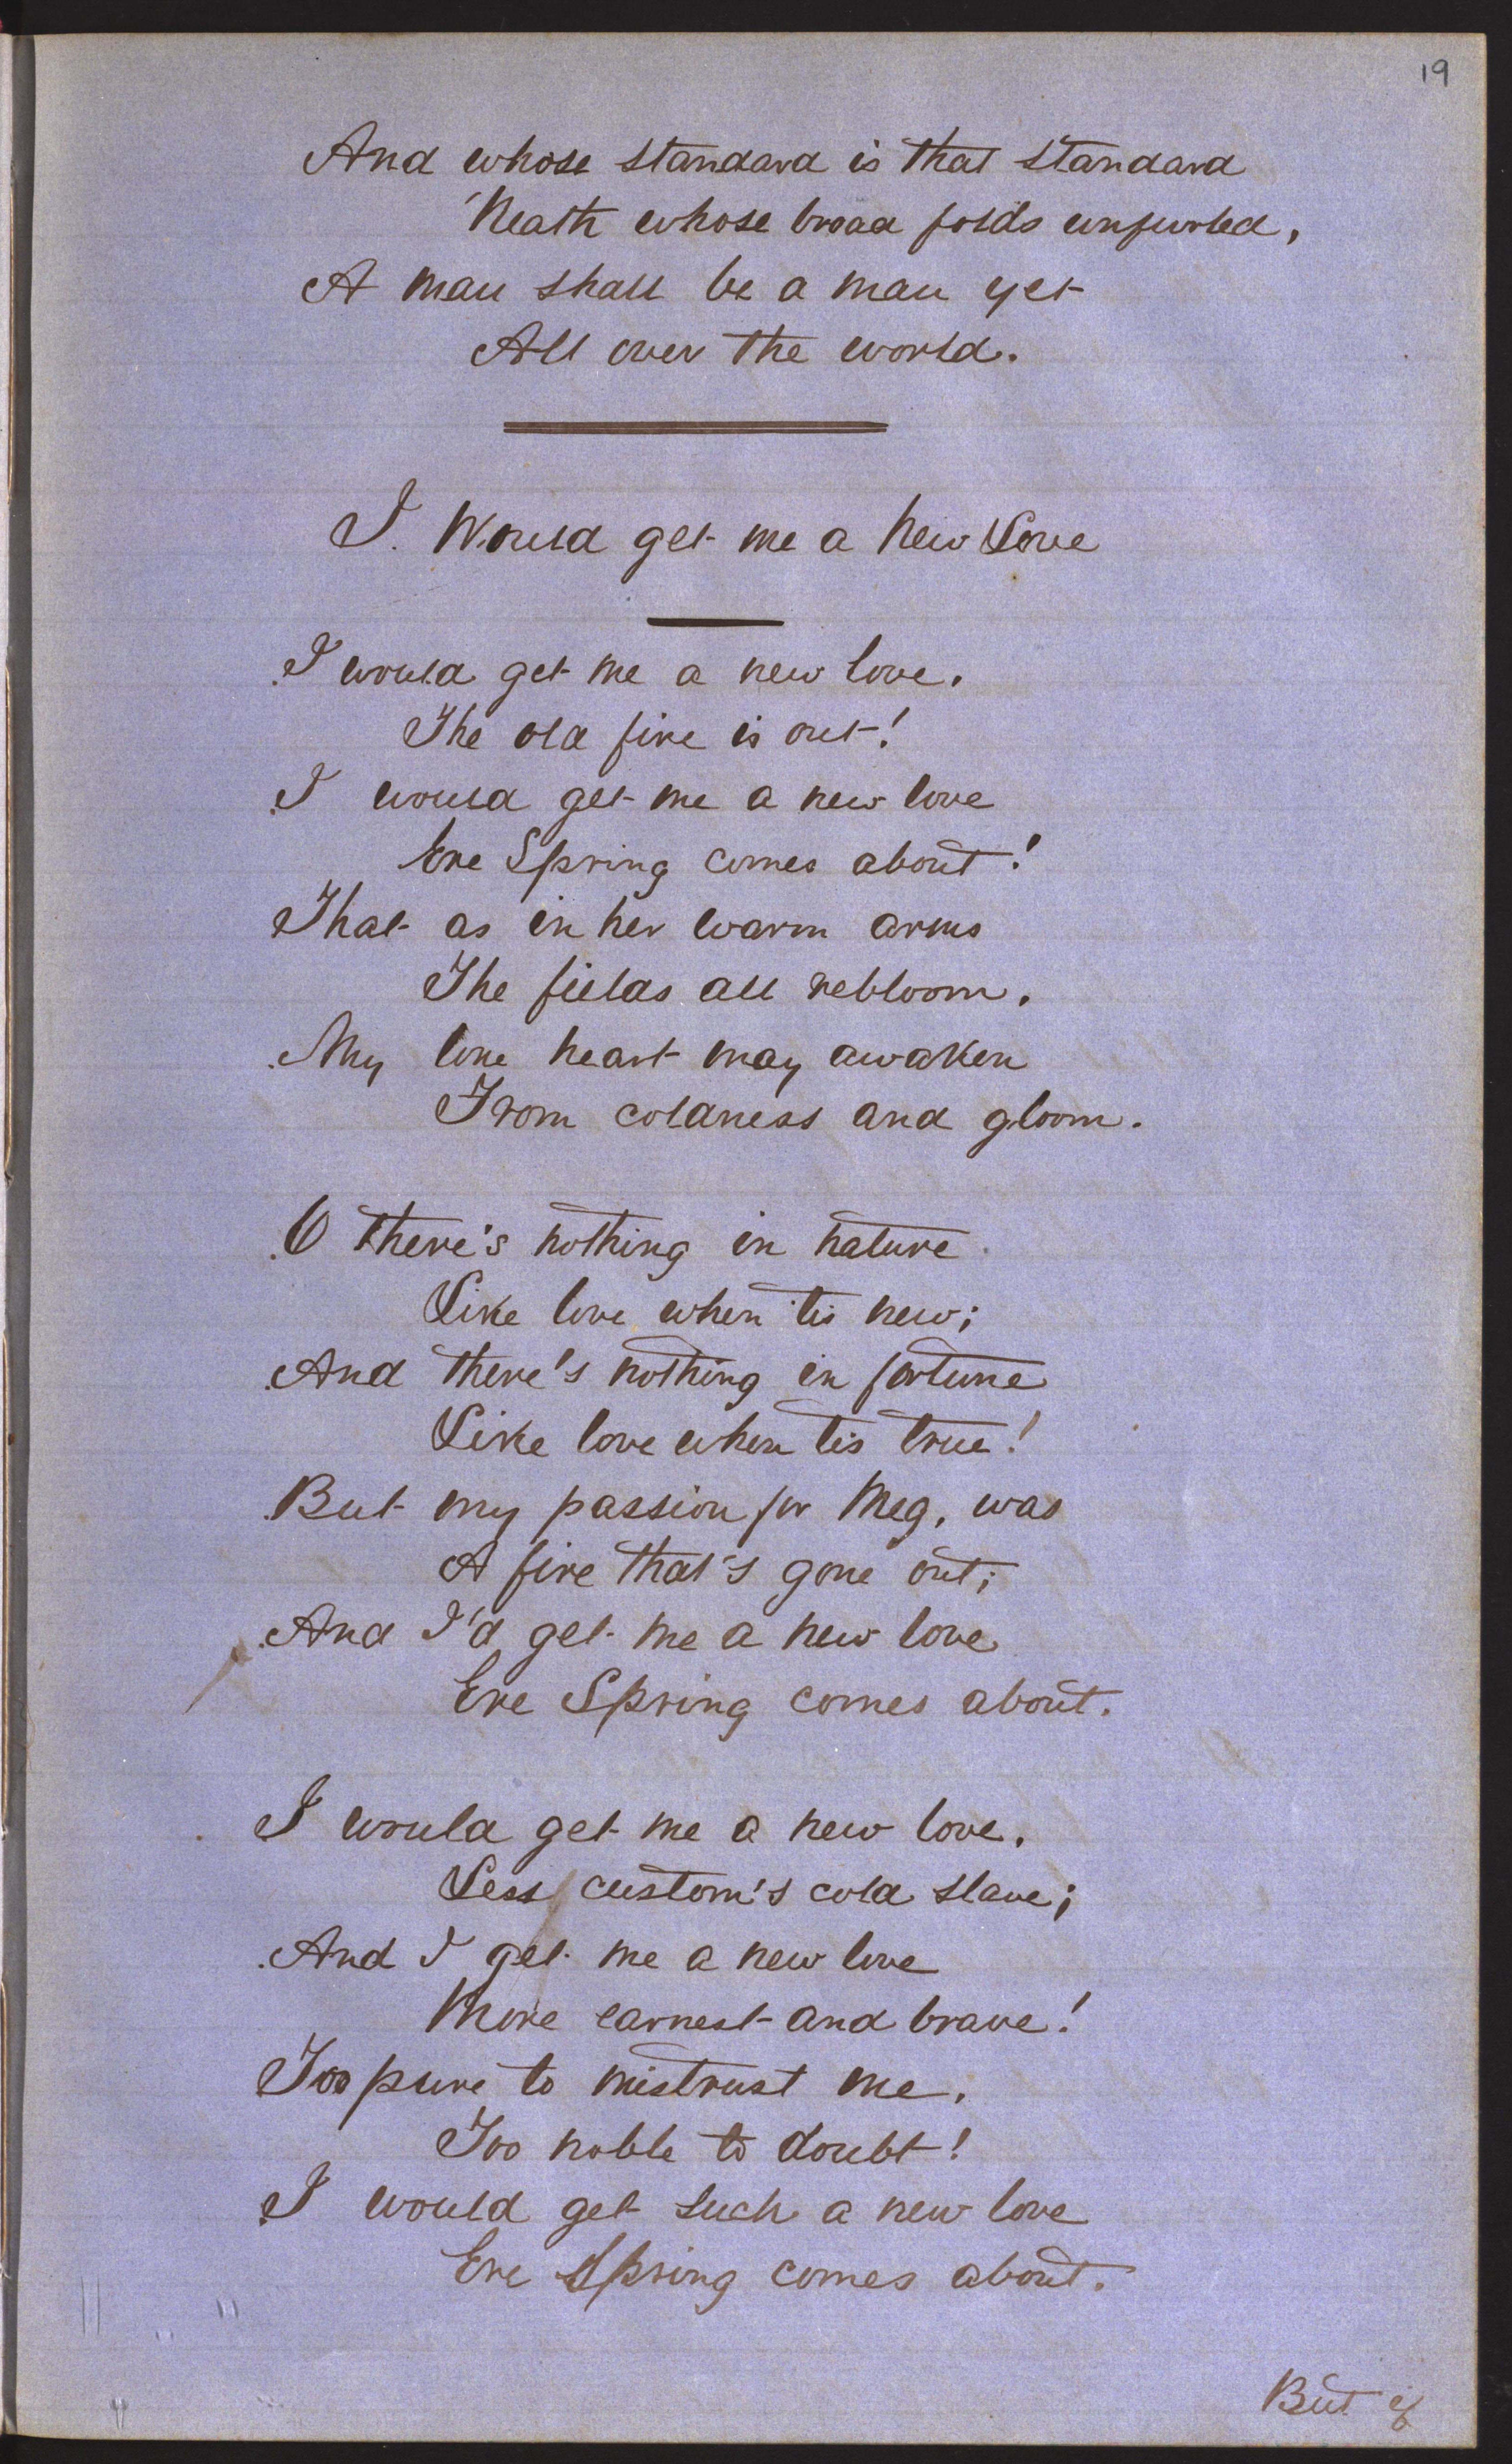 19
And whose standard is that standard
'Neath whose broad folds unfurled,
A man shall be a man yet
All over the world.
I Would get me a New Love
I would get me a new love,
The old fire is out!
I would get me a new love
Ere Spring comes about!
That as in her warm arms
The fields all rebloom,
My lone heart may awaken
From coldness and gloom.
O there's nothing in nature
Like love when 'tis new;
And there's nothing in fortune
Like love when tis true!
But my passion for Meg, was
A fire that's gone out;
And I'd get me a new love
Ere Spring comes about.
I would get me a new love,
Less custom's cold slave;
And I get me a new love
More earnest and brave!
Too pure to mistrust me,
Too noble to doubt!
I would get such a new love
Ere Spring comes about.
But if